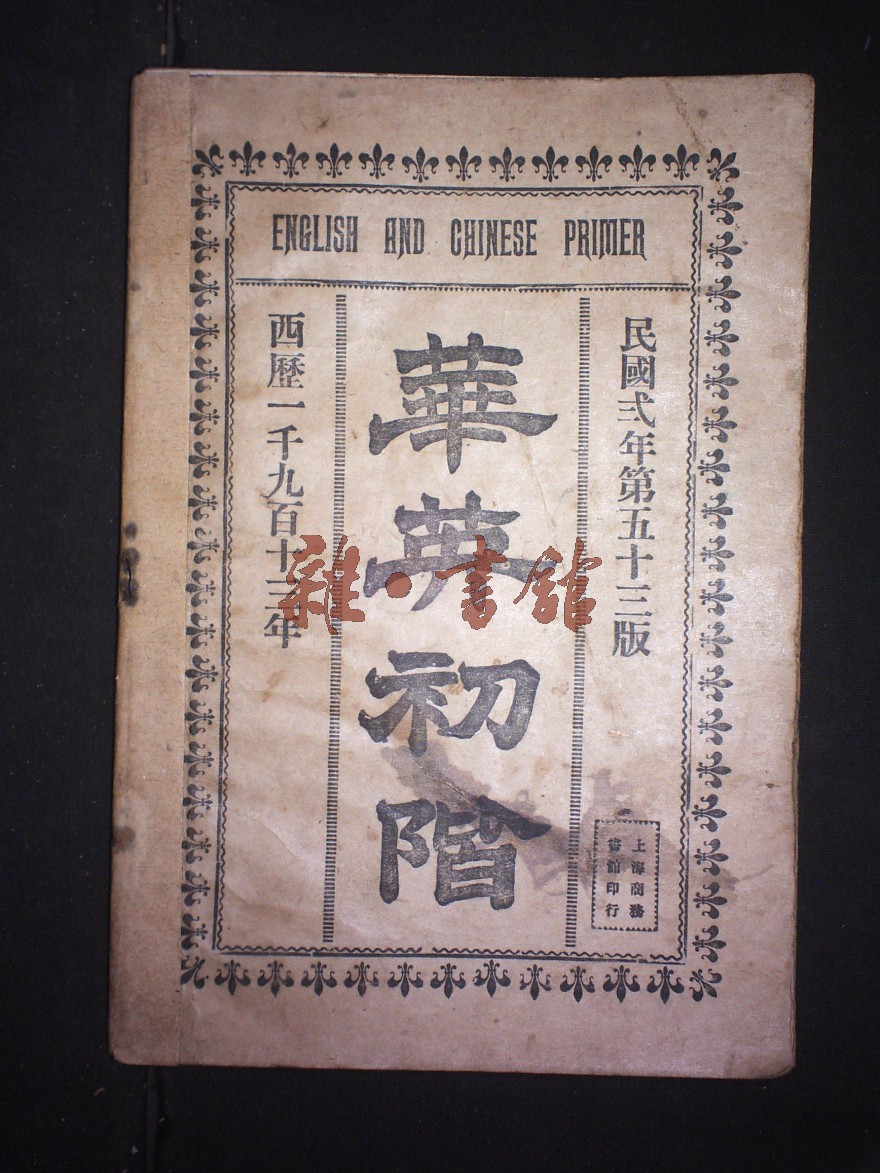 ENGLISH AND CHINESE PRIMER
民國弍年第五十三版
華英初階
西歷一千九百十三年
上海商務
書館印行
雜·書館